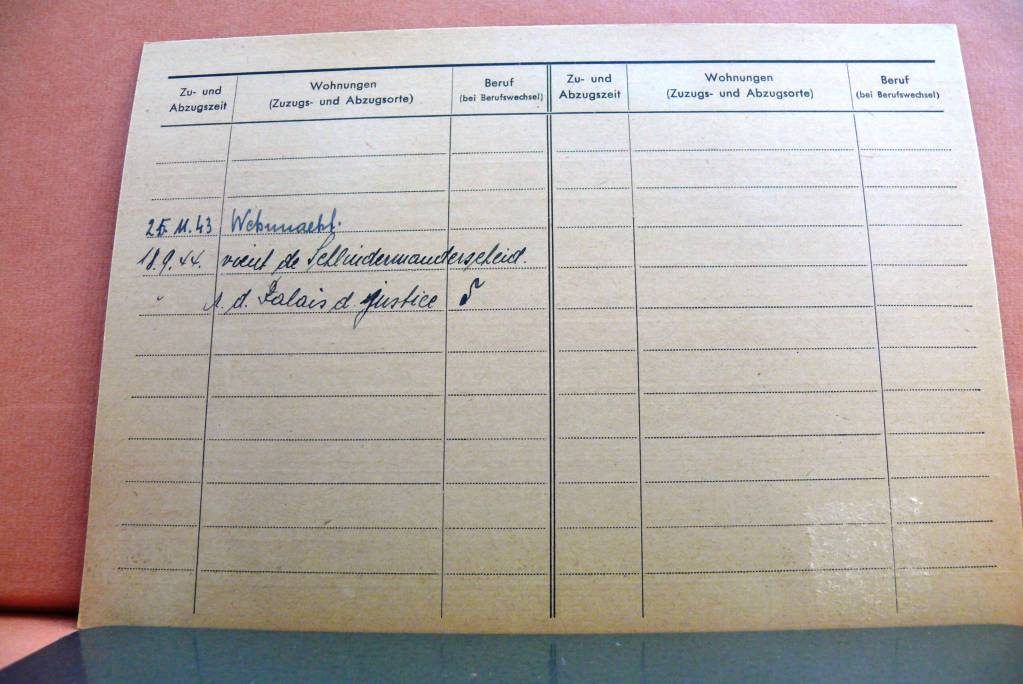 Zu- und Abzugszeit
Wohnungen
(Zuzugs- und Abzugsorte)
Beruf
(bei Berufswechsel)
Zu- und Abzugszeit
Wohnungen
(Zuzugs- und Abzugsorte)
Beruf
(bei Berufswechsel)
11.43 Wehrmacht.
18.9.44. vient de Schlindermanderscheid.
" d. Palais d. Justice 5